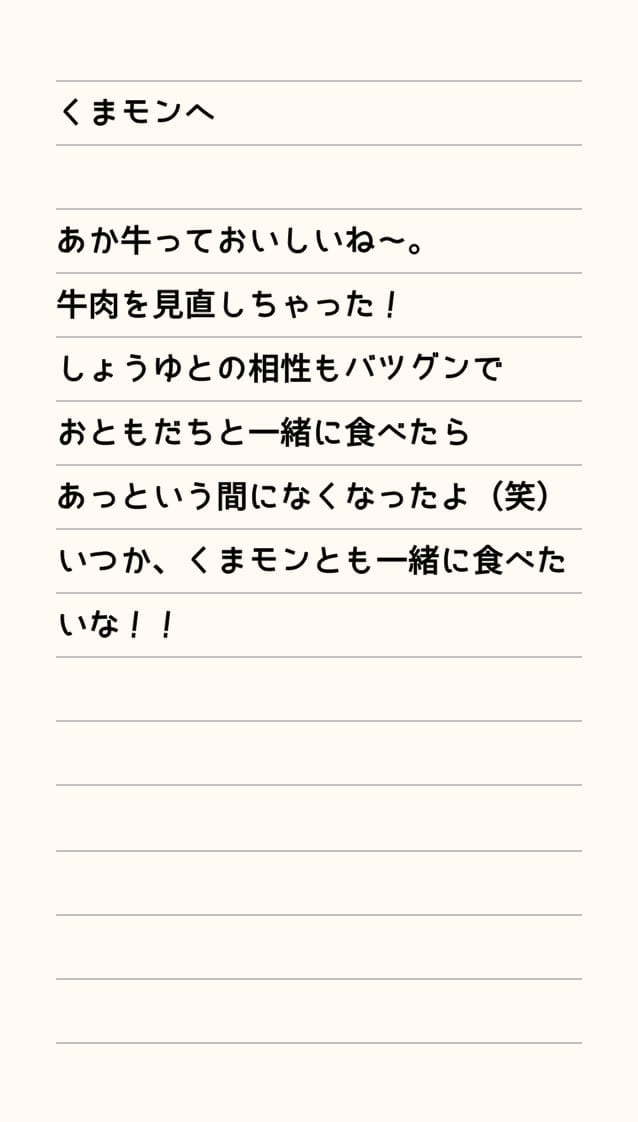 くまモンへ
あか牛っておいしいね～。
牛肉を見直しちゃった！
しょうゆとの相性もバツグンで
おともだちと一緒に食べたら
あっという間になくなったよ（笑）
いつか、くまモンとも一緒に食べた
いな！！